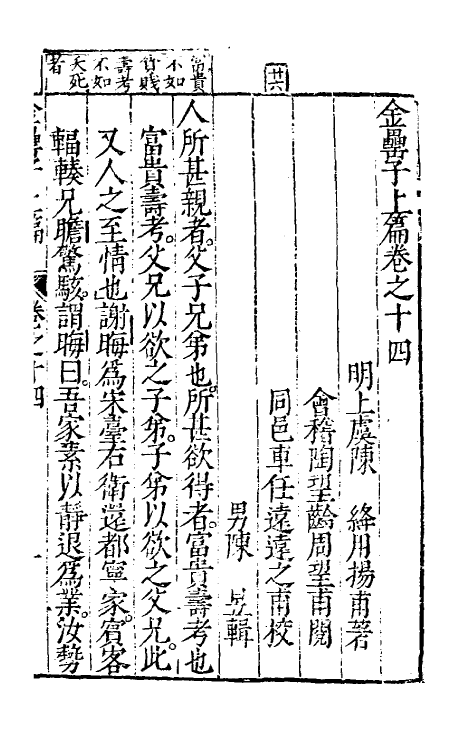 富貴
不如
貧賤
壽考
不如
夭死
者
廿六
金罍子上篇卷之十四
明上虞陳　絳用揚甫著
會稽陶望齡周望甫閱
同邑車任遠遠之甫校
男陳　昱輯
人所甚親者。父子兄弟也。所甚欲得者。富貴壽考也
富貴壽考。父兄以欲之子弟。子弟以欲之父兄。此
又人之至情也。謝晦爲宋臺右衛還都寧家。賓客
輻輳兄瞻驚駭。謂晦曰。吾家素以靜退爲業。汝勢
金罍子上篇　卷之十四　一